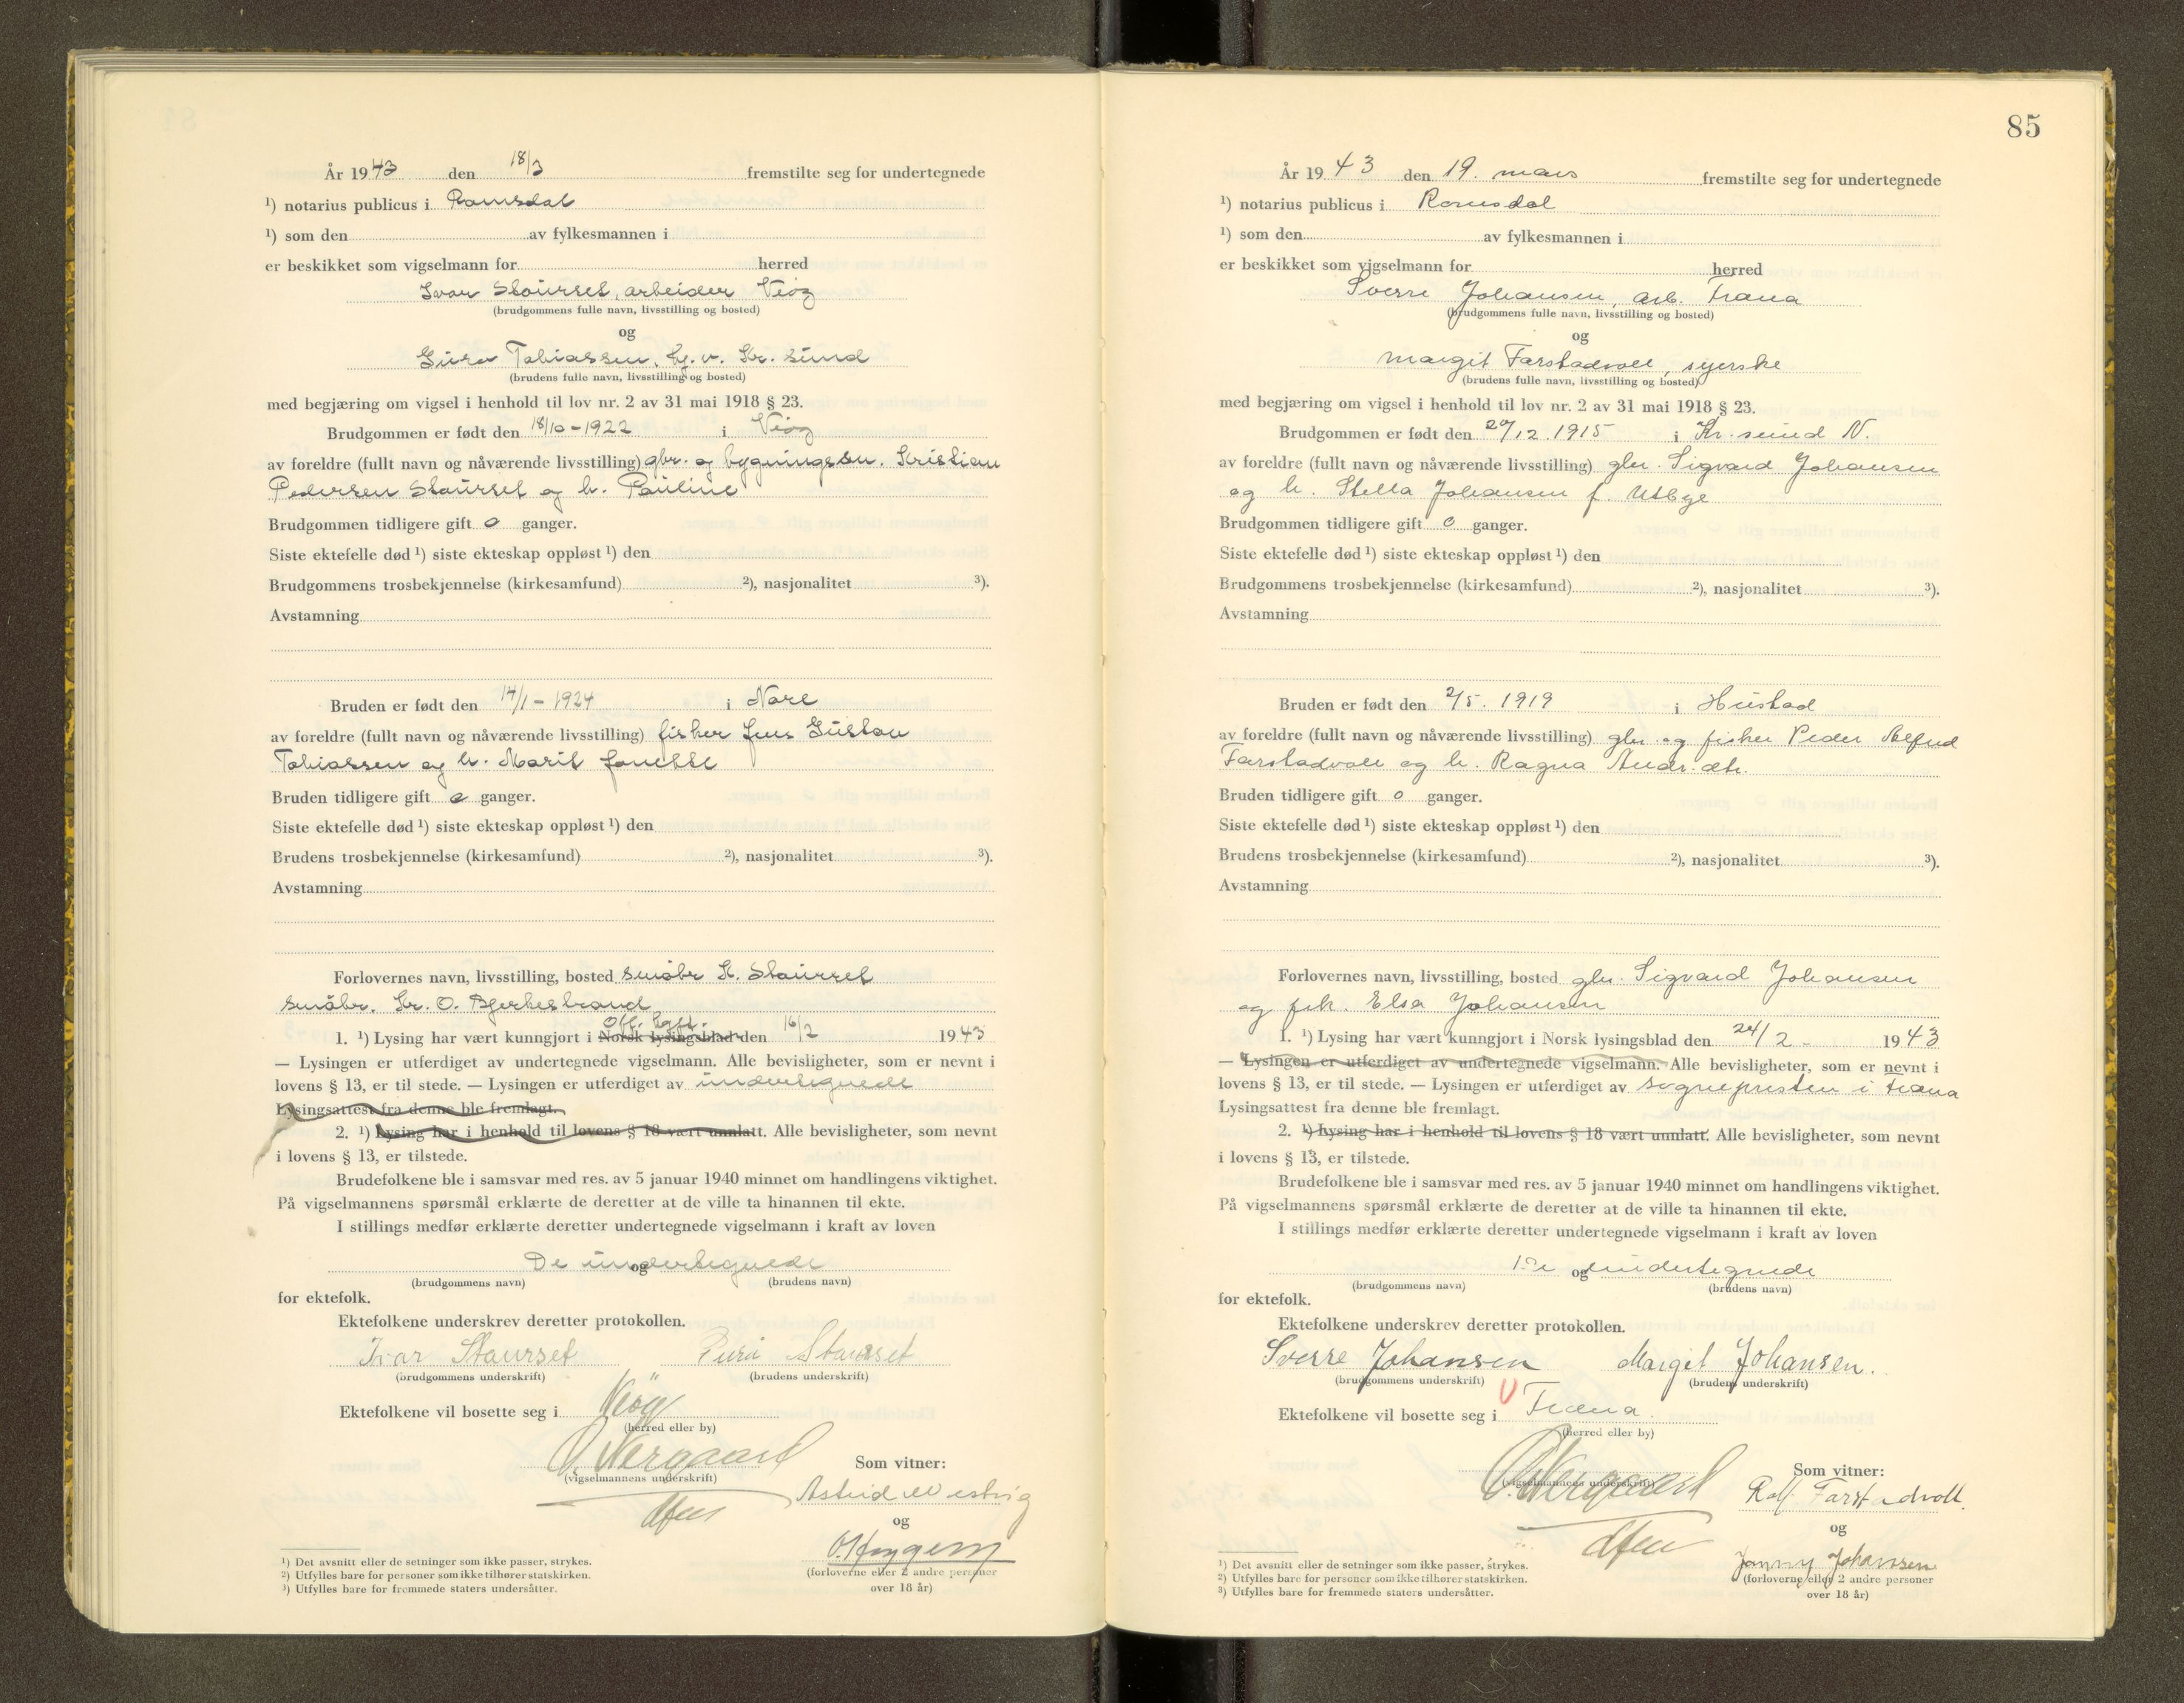 År 1943 den 18/3 fremstilte seg for undertegnede
¹) notarius publicus i Romsdal
¹) som den av fylkesmannen i
er beskikket som vigselmann for herred
Ivar Staurset, arbeider Veøy
(brudgommens fulle navn, livsstilling og bosted)
og
Guro Tobiassen, Kr. sund
(brudens fulle navn, livsstilling og bosted)
med begjæring om vigsel i henhold til lov nr. 2 av 31 mai 1918 § 23.
Brudgommen er født den 18/10-1922 i Veøy
av foreldre (fullt navn og nåværende livsstilling) gbr. og bygningssn. Kristian
Pedersen Staurset og h. Pauline
Brudgommen tidligere gift 0 ganger.
Siste ektefelle død ¹) siste ekteskap oppløst ¹) den
Brudgommens trosbekjennelse (kirkesamfund) ²), nasjonalitet ³).
Avstamning
Bruden er født den 14/1-1924 i
av foreldre (fullt navn og nåværende livsstilling) fisker Jens Gustav
Tobiassen og h. Marit Janette
Bruden tidligere gift 0 ganger.
Siste ektefelle død ¹) siste ekteskap oppløst ¹) den
Brudens trosbekjennelse (kirkesamfund) ²), nasjonalitet ³).
Avstamning
Forlovernes navn, livsstilling, bosted småbr K. Staurset
småbr. Kr. O. Bjerkestrand
Off. kgj.
1. ¹) Lysing har vært kunngjort i Norsk lysingsblad den 16/2 1943
— Lysingen er utferdiget av undertegnede vigselmann. Alle bevisligheter, som er nevnt i
lovens § 13, er til stede. — Lysingen er utferdiget av undertegnede
Lysingsattest fra denne ble fremlagt.
2. ¹) Lysing har i henhold til lovens § 18 vært unnlatt. Alle bevisligheter, som nevnt
i lovens § 13, er tilstede.
Brudefolkene ble i samsvar med res. av 5 januar 1940 minnet om handlingens viktighet.
På vigselmannens spørsmål erklærte de deretter at de ville ta hinannen til ekte.
I stillings medfør erklærte deretter undertegnede vigselmann i kraft av loven
De undertegnede
og
(brudgommens navn) (brudens navn)
for ektefolk.
Ektefolkene underskrev deretter protokollen.
Ivar Staurset Guri Staurset
(brudgommens underskrift) (brudens underskrift)
Ektefolkene vil bosette seg i Veøy
(herred eller by)
O. Nergaard
(vigselmannens underskrift)
Som vitner:
Astrid Westvig
og
(forloverne eller 2 andre personer
over 18 år)
¹) Det avsnitt eller de setninger som ikke passer, strykes.
²) Utfylles bare for personer som ikke tilhører statskirken.
³) Utfylles bare for fremmede staters undersåtter.
85
År 1943 den 19. mars fremstilte seg for undertegnede
¹) notarius publicus i Romsdal
¹) som den av fylkesmannen i
er beskikket som vigselmann for herred
Sverre Johansen, arb. Fræna
(brudgommens fulle navn, livsstilling og bosted)
og
Margit Farstadvoll, syerske
(brudens fulle navn, livsstilling og bosted)
med begjæring om vigsel i henhold til lov nr. 2 av 31 mai 1918 § 23.
Brudgommen er født den 29/12.1915 i Kr.sund N.
av foreldre (fullt navn og nåværende livsstilling) gbr. Sigvard Johansen
og h. Stella Johansen f. Utbye
Brudgommen tidligere gift 0 ganger.
Siste ektefelle død ¹) siste ekteskap oppløst ¹) den
Brudgommens trosbekjennelse (kirkesamfund) ²), nasjonalitet ³).
Avstamning
Bruden er født den 2/5. 1919 i Hustad
av foreldre (fullt navn og nåværende livsstilling) gbr. og fisker Peder Alfred
Farstadvoll og h. Ragna Andr.dtr.
Bruden tidligere gift 0 ganger.
Siste ektefelle død ¹) siste ekteskap oppløst ¹) den
Brudens trosbekjennelse (kirkesamfund) ²), nasjonalitet ³).
Avstamning
Forlovernes navn, livsstilling, bosted gbr. Sigvard Johansen
og frk. Elsa Johansen
1. ¹) Lysing har vært kunngjort i Norsk lysingsblad den 24/2 - 1943
— Lysingen er utferdiget av undertegnede vigselmann. Alle bevisligheter, som er nevnt i
lovens § 13, er til stede. — Lysingen er utferdiget av sognepresten i Fræna
Lysingsattest fra denne ble fremlagt.
2. ¹) Lysing har i henhold til lovens § 18 vært unnlatt. Alle bevisligheter, som nevnt
i lovens § 13, er tilstede.
Brudefolkene ble i samsvar med res. av 5 januar 1940 minnet om handlingens viktighet.
På vigselmannens spørsmål erklærte de deretter at de ville ta hinannen til ekte.
I stillings medfør erklærte deretter undertegnede vigselmann i kraft av loven
De og undertegnede
(brudgommens navn) (brudens navn)
for ektefolk.
Ektefolkene underskrev deretter protokollen.
Sverre Johansen Margit Johansen.
(brudgommens underskrift) (brudens underskrift)
Ektefolkene vil bosette seg i Fræna.
(herred eller by)
O. Nergaard
(vigselmannens underskrift)
Som vitner:
Rolf Farstadvoll.
og
Jonny Johanssen
(forloverne eller 2 andre personer
over 18 år)
¹) Det avsnitt eller de setninger som ikke passer, strykes.
²) Utfylles bare for personer som ikke tilhører statskirken.
³) Utfylles bare for fremmede staters undersåtter.